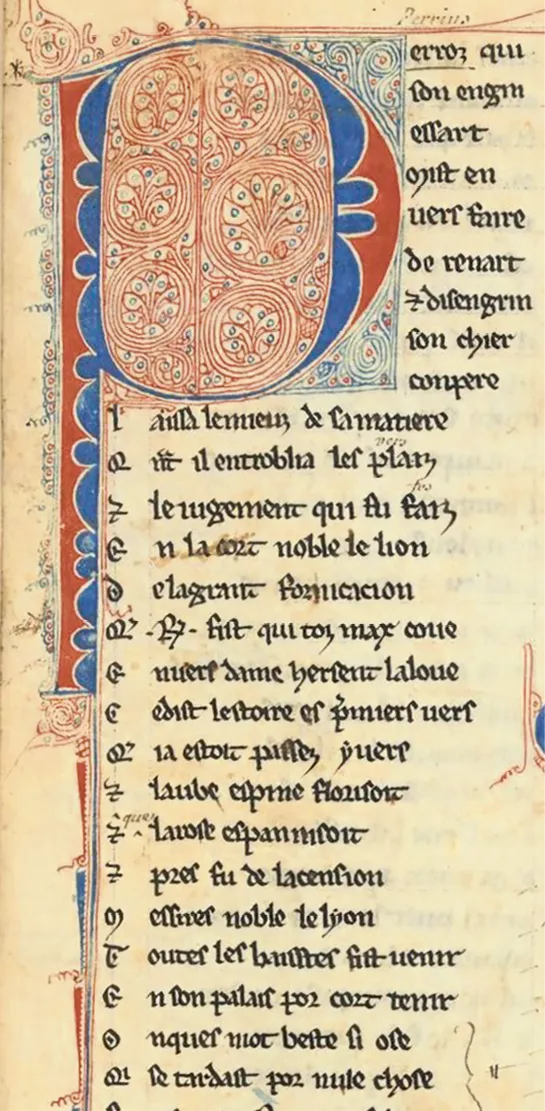 Perrius
Perroz qui
son engin
essart
Mist en
uers faire
de renart
⁊ disengrin
son chier
conpere
L aissa lemieuz de samatiere
Q 'nt il entroblia les plaiz
vers
⁊ le iugement qui fu faiz
fos
E n la cort noble le lion
D elagrant fornicacion
Q' .R. fist qui toz max coue
E nuers dame hersent laloue
C edist lestoire es p'miers uers
Q' ia estoit passez yuers
⁊ laube espine florisoit
⁊ que larose espannisoit
⁊ pres fu de lacension
M essires noble le lyon
T outes les baisstes fist uenir
E n son palais por cort tenir
O nques not beste si ose
Q' se tardast por nule chose